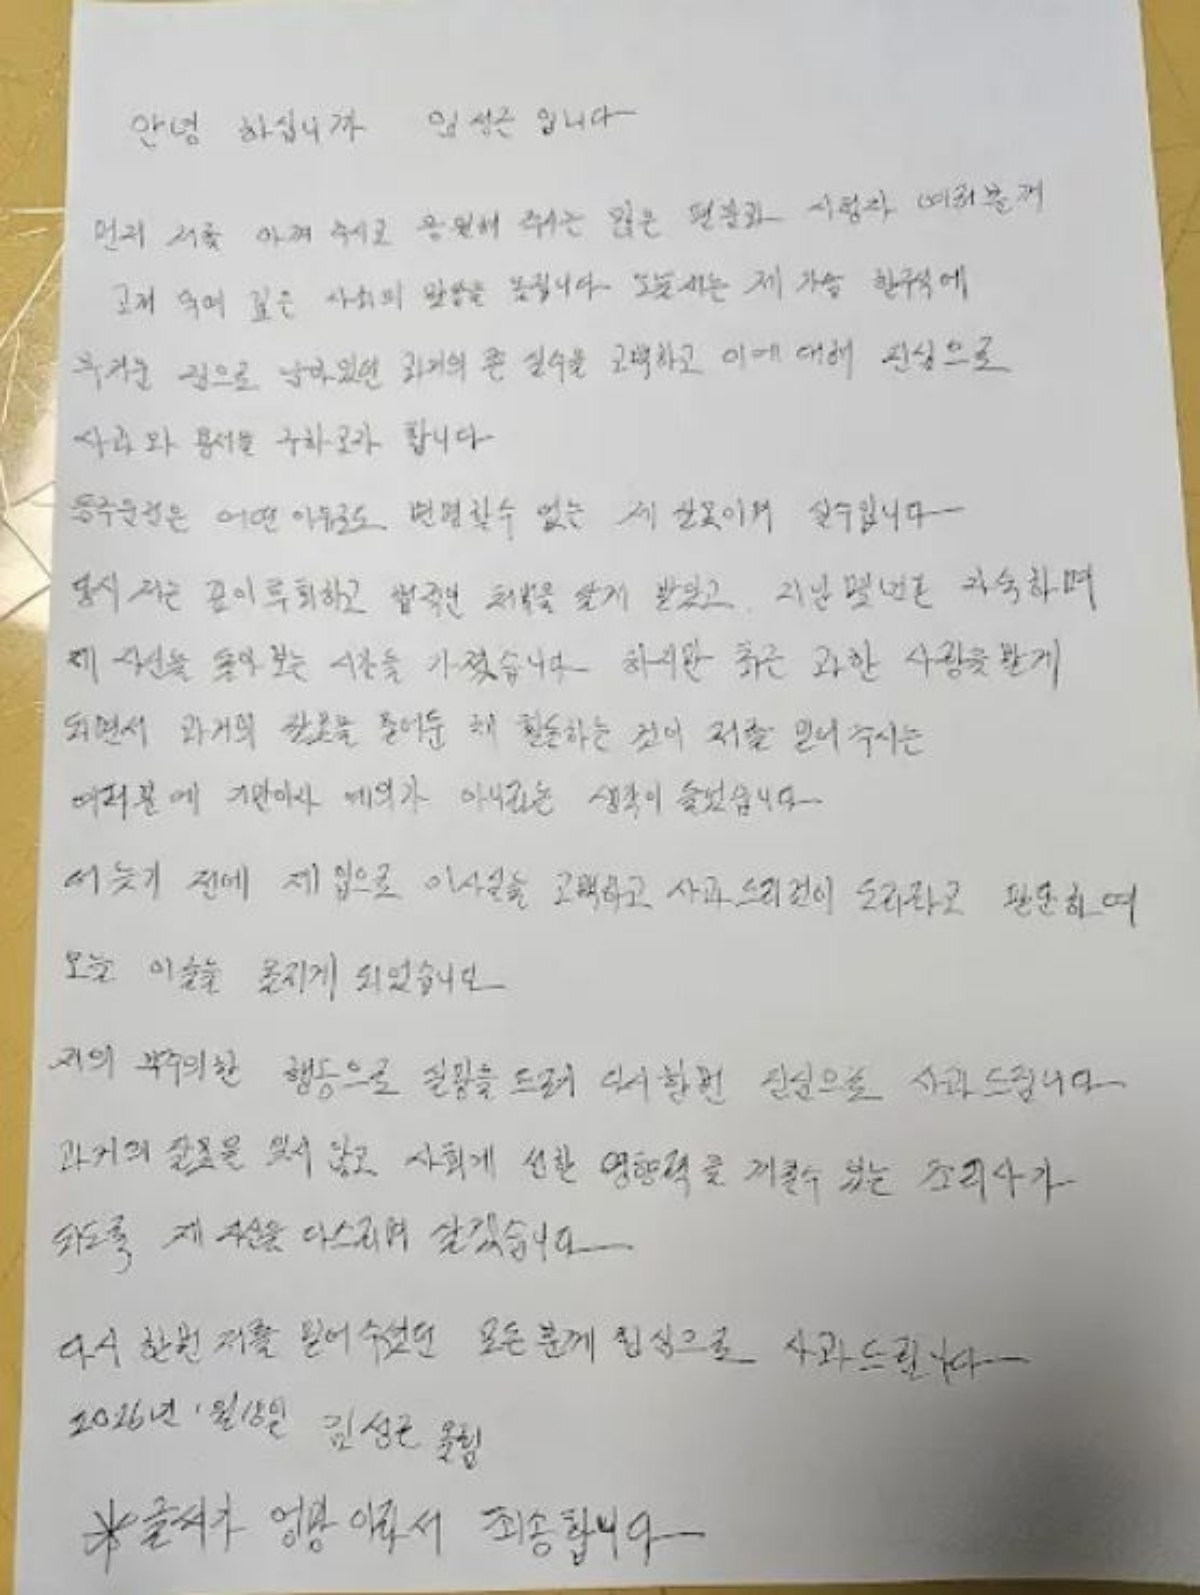 안녕 하십니까 임성근 입니다
먼저 저를 아껴 주시고 응원해 주시는 많은 팬분과 시청자 여러분께
고개 숙여 깊은 사죄의 말씀을 올립니다 오늘 저는 제 가슴 한구석에
무거운 짐으로 남아있던 과거의 큰 실수를 고백하고 이에 대해 진심으로
사과와 용서를 구하고자 합니다
음주운전은 어떤 이유로도 변명할수 없는 제 잘못이며 실수입니다
당시 저는 깊이 후회하고 법적인 처벌을 달게 받았고 지난 몇년은 자숙하며
제 자신을 돌아 보는 시간을 가졌습니다 하지만 최근 과한 사랑을 받게
되면서 과거의 잘못을 묻어둔 채 활동하는 것이 저를 믿어 주시는
여러분에 기만이자 예의가 아니라는 생각이 들었습니다
더 늦기 전에 제 입으로 이사실을 고백하고 사과 드리것이 도리라고 판단하여
오늘 이글을 올리게 되었습니다
저의 부주의한 행동으로 실망을 드려 다시한번 진심으로 사과드립니다
과거의 잘못을 잊지 않고 사회게 선한 영향력을 끼칠수 있는 조리사가
되도록 제 자신을 다스리며 살겠습니다
다시 한번 저를 믿어 주셨던 모든분께 진심으로 사과드립니다
2026년 1월 18일 임성근 올림
*글씨가 엉망 이라서 죄송합니다